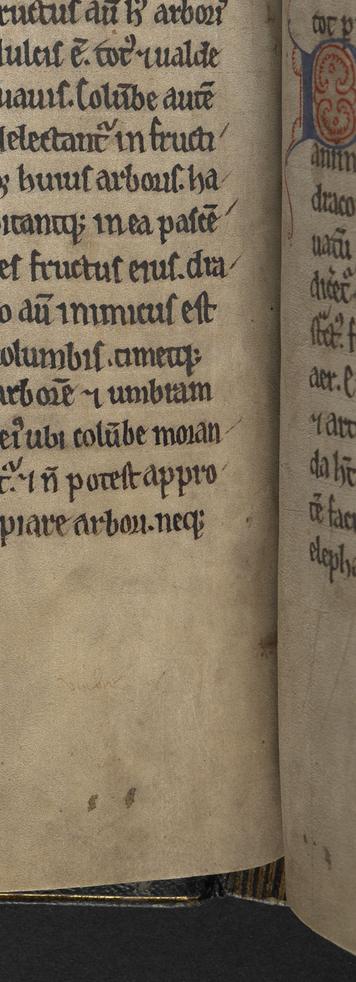 ructus aū h' arbori'
dulcis ē. tot' ⁊ ualde
suauis. Colūbe autē
delectant' in fructi
huius arboris. ha
bitantq; in ea pascē
es fructus eius. dra
o aū inimicus est
columbis. timetq;
arborē ⁊ umbram
ei' ubi colūbe moran
t'. ⁊ ñ potest appro
piare arbori. neq;
tot p
anim
draco
uatū
dicet'
aer. E
⁊ art
da h't
tē fac
eleph